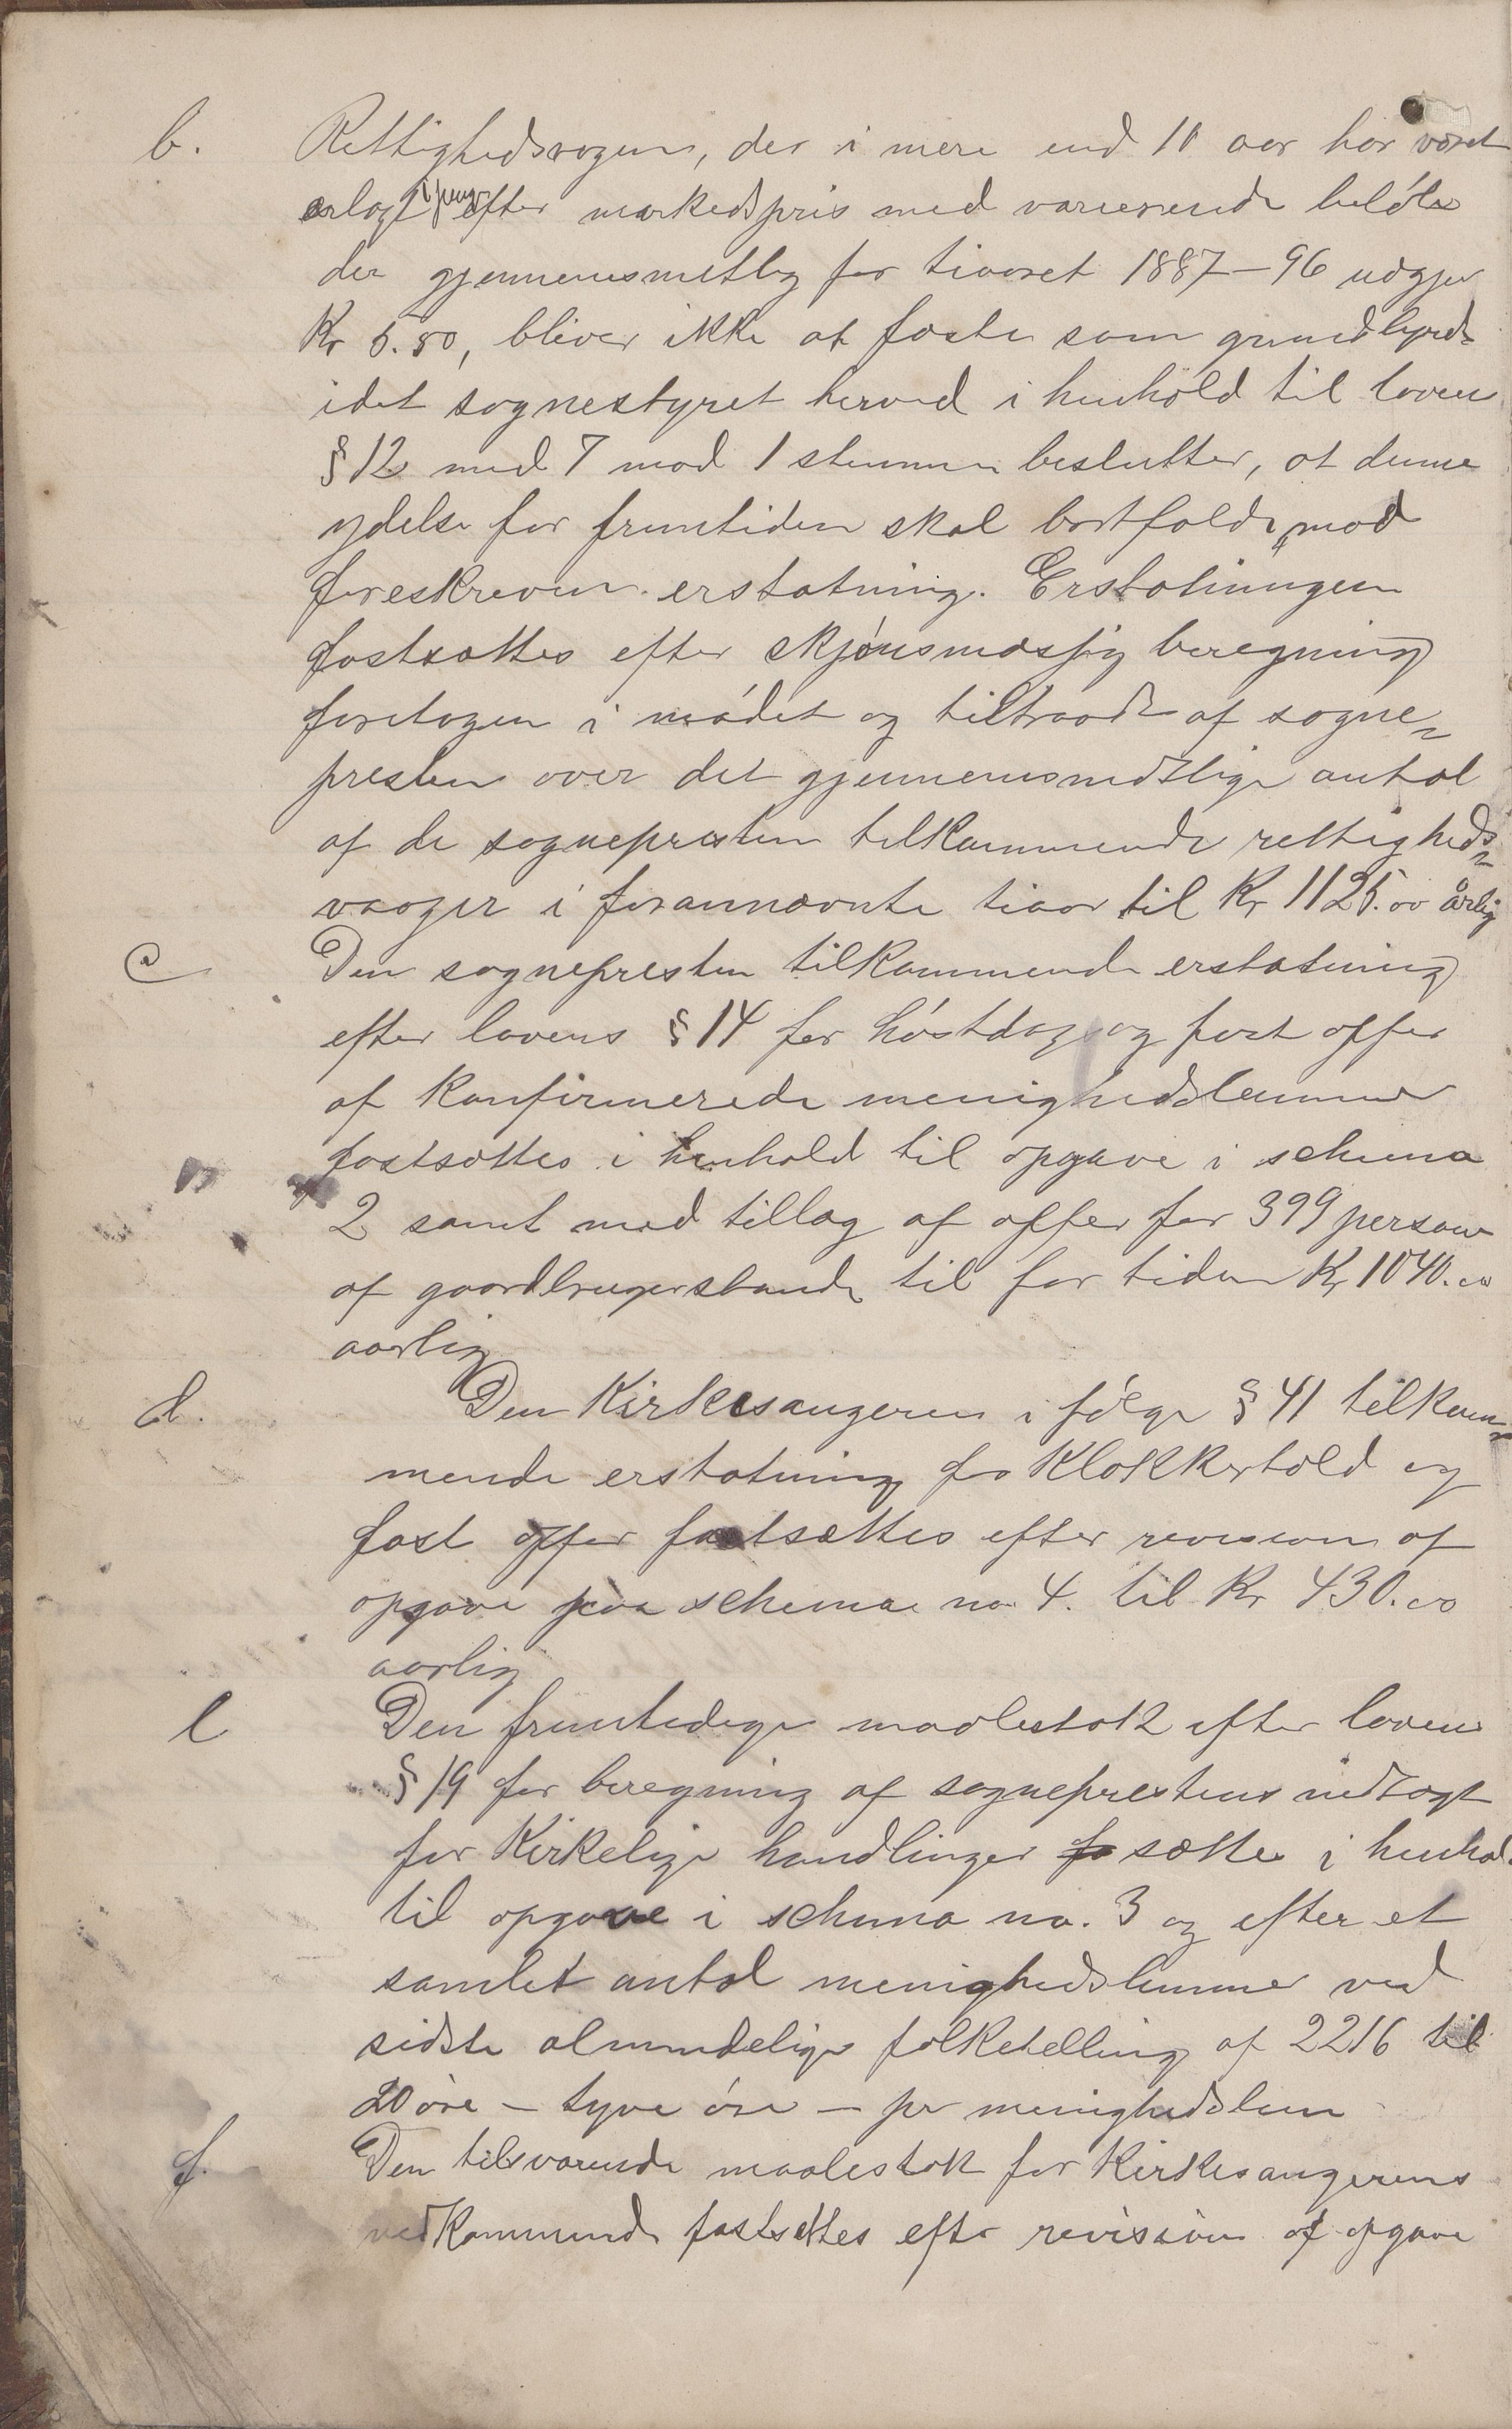 b. Rettighedsvogen, der i mere end 10 aar har været
erlagt i penge efter markedspris med varierende beløb
der gjennemsnitlig for tiaaret 1887-96 udgjør
Kr 5.80, bliver ikke at fæste som grundbyrde
idet sognestyret herved i henhold til lovens
§ 12 med 7 mod 1 stemmer beslutter, at denne
ydelse for fremtiden skal bortfalde mod
foreskreven erstatning. Erstatningen
fastsættes efter skjønsmæssig beregning
foretagen i mødet og tiltraadt af sogne-
presten over det gjennemsnitlige antal
af de sognepresten tilkommende rettigheds-
vaager i forannævnte tiaar til Kr 1125.00 årlig
c Den sognepresten tilkommende erstatning
efter lovens § 14 for høstdag og fast offer
af konfirmerede menighedslemmer
fastsættes i henhold til opgave i schema
2 samt med tillæg af offer for 399 personer
af gaardbrugerstande til for tiden Kr 1040.00
aarlig
d. Den Kirkesangeren i følge § 41 tilkom-
mende erstatning for Klokkertold og
fast offer fastsættes efter revision af
opgave paa schema no 4. til Kr 430.00
aarlig
e Den fremtidige maalestok efter lovens
§ 19 for beregning af sogneprestens indtægt
for Kirkelige handlinger fa sættes i henhold
til opgave i schema no. 3 og efter et
samlet antal menighedslemmer ved
sidste almindelige folketelling af 2216 til
20 øre - tyve øre - pr menighedslem
f. Den tilsvarende maalestok for Kirkesangerens
vedkommende fastsættes efter revision af opgave